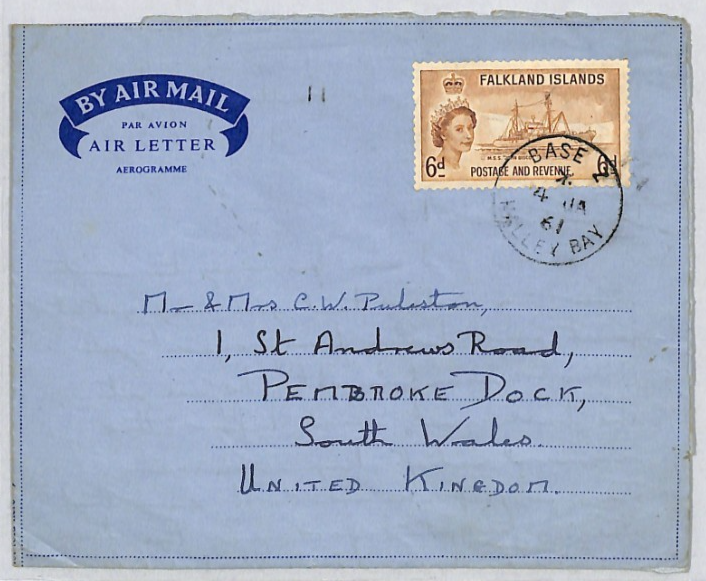 BY AIR MAIL
PAR AVION
AIR LETTER
AEROGRAMME
FALKLAND ISLANDS
6d
M.S.S. JOHN BISCOE
POSTAGE AND REVENUE
6d
BASE Z
4 JA
61
HALLEY BAY
Mr & Mrs C.W. Puleston,
1, St Andrews Road,
PEMBROKE DOCK,
South Wales.
UNITED KINGDOM.